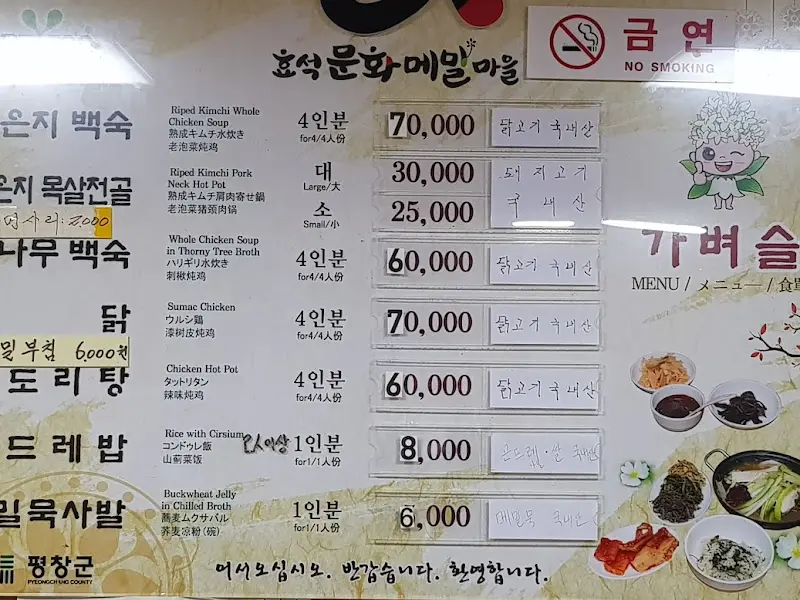 효석문화메밀마을
금연
NO SMOKING
은지 백숙
Riped Kimchi Whole
Chicken Soup
熟成キムチ水炊き
老泡菜炖鸡
4인분
for4/4人份
70,000
닭고기 국내산
은지 목살전골
Riped Kimchi Pork
Neck Hot Pot
熟成キムチ肩肉寄せ鍋
老泡菜猪颈肉锅
대
Large/大
30,000
소
Small/小
25,000
돼지고기
국내산
사리: 2,000
나무 백숙
Whole Chicken Soup
in Thorny Tree Broth
ハリギリ水炊き
刺楸炖鸡
4인분
for4/4人份
60,000
닭고기 국내산
닭
Sumac Chicken
ウルシ鶏
漆树皮炖鸡
4인분
for4/4人份
70,000
닭고기 국내산
밀부침 6,000원
도리탕
Chicken Hot Pot
タットリタン
辣味炖鸡
4인분
for4/4人份
60,000
닭고기 국내산
드레밥
Rice with Cirsium
コンドゥレ飯
山蓟菜饭
2人이상
1인분
for1/1人份
8,000
곤드레, 쌀 국내산
밀묵사발
Buckwheat Jelly
in Chilled Broth
蕎麦ムクサバル
荞麦凉粉(碗)
1인분
for1/1人份
6,000
메밀묵 국내산
가벼슬
MENU / メニュー / 食單
평창군
PYEONGCHANG COUNTY
어서오십시오. 반갑습니다. 환영합니다.